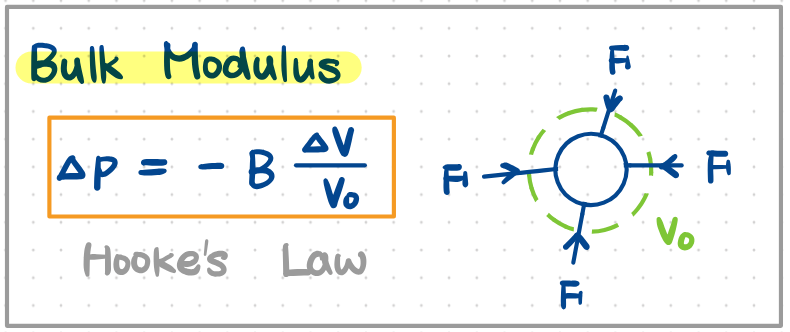 Bulk Modulus
Δp = - B ΔV/V₀
Hooke's Law
F
F
F
F
V₀